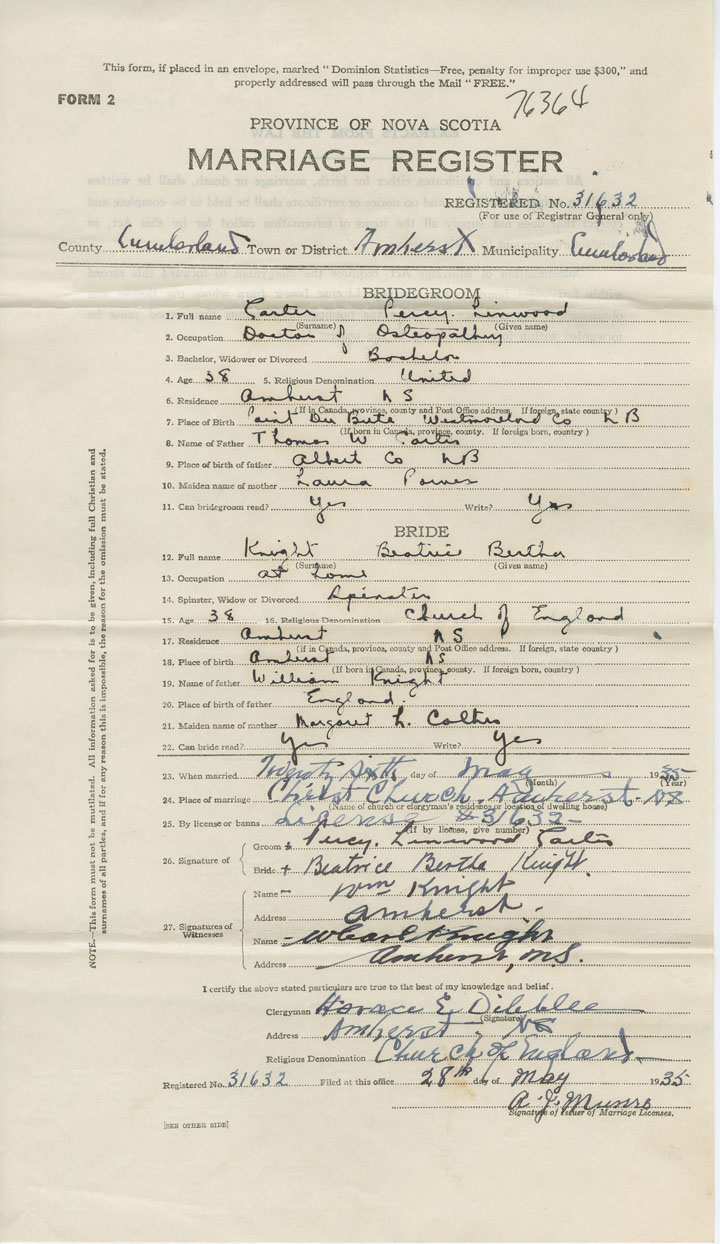 This form, if placed in an envelope, marked "Dominion Statistics—Free, penalty for improper use $300," and
properly addressed will pass through the Mail "FREE."
FORM 2
76364
PROVINCE OF NOVA SCOTIA
MARRIAGE REGISTER
REGISTERED No. 31632
(For use of Registrar General only)
County Cumberland Town or District Amherst Municipality Cumberland
BRIDEGROOM
1. Full name Carter Percy Linwood
(Surname) (Given name)
2. Occupation Doctor of Osteopathy
3. Bachelor, Widower or Divorced Bachelor
4. Age 38 5. Religious Denomination United
6. Residence Amherst N S
(If in Canada, province, county and Post Office address. If foreign, state country)
7. Place of Birth Point Du Bute Westmorland Co N B
(If born in Canada, province, county. If foreign born, country)
8. Name of Father Thomas W Carter
9. Place of birth of father Albert Co N B
10. Maiden name of mother Laura Power
11. Can bridegroom read? Yes Write? Yes
BRIDE
12. Full name Knight Beatrice Bertha
(Surname) (Given name)
13. Occupation at Home
14. Spinster, Widow or Divorced Spinster
15. Age 38 16. Religious Denomination Church of England
17. Residence Amherst N S
(If in Canada, province, county and Post Office address. If foreign, state country)
18. Place of birth Amherst N S
(If born in Canada, province, county. If foreign born, country)
19. Name of father William Knight
20. Place of birth of father England
21. Maiden name of mother Margaret L.
22. Can bride read? Yes Write? Yes
23. When married Twenty sixth day of May 1935
(Month) (Year)
24. Place of marriage Christ Church, Amherst - NS
(Name of church or clergyman's residence or location of dwelling house)
25. By license or banns License #31632-
(If by license, give number)
26. Signature of
Groom + Percy Linwood Carter
Bride + Beatrice Bertha Knight.
27. Signatures of Witnesses
Name - Wm Knight
Address Amherst.
Name - W Carl Knight
Address Amherst, N.S.
I certify the above stated particulars are true to the best of my knowledge and belief.
Clergyman Horace E. Dibblee
(Signature)
Address Amherst, NS
Religious Denomination Church of England
Registered No. 31632 Filed at this office 28th day of May 1935
A. J. Munro
Signature of Issuer of Marriage Licenses.
[SEE OTHER SIDE]
NOTE.—This form must not be mutilated. All information asked for is to be given, including full Christian and
surnames of all parties, and if for any reason this is impossible, the reason for the omission must be stated.